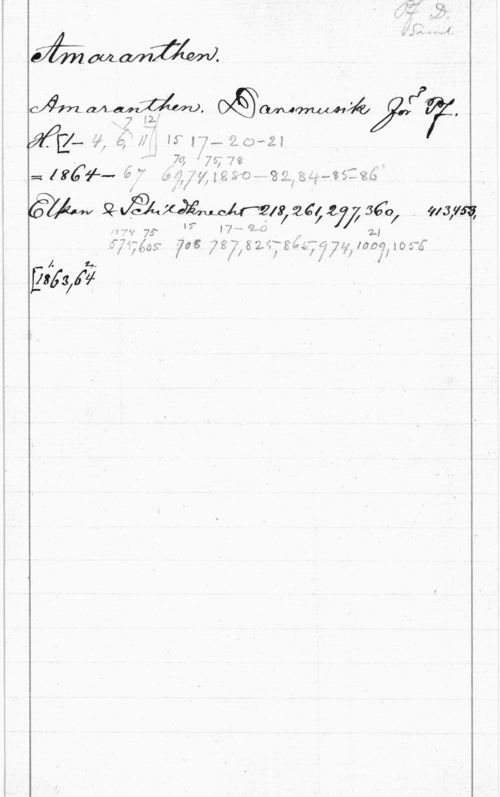 Pf D.
Saml
Amaranthen.
Amaranthen. Dansmusik för Pf.
7, 12
H. [1- 4, 6, 11] 15 17-20-21
70, 75, 78
= 1864- 67 69, 74, 1880-82, 84-85-86
Elkan & Schildknecht 218, 261, 297, 360, 413, 453,
1874 75 15 17-20 21
575, 605 708 787, 825, 865, 974, 1009, 1056
[1863, 64